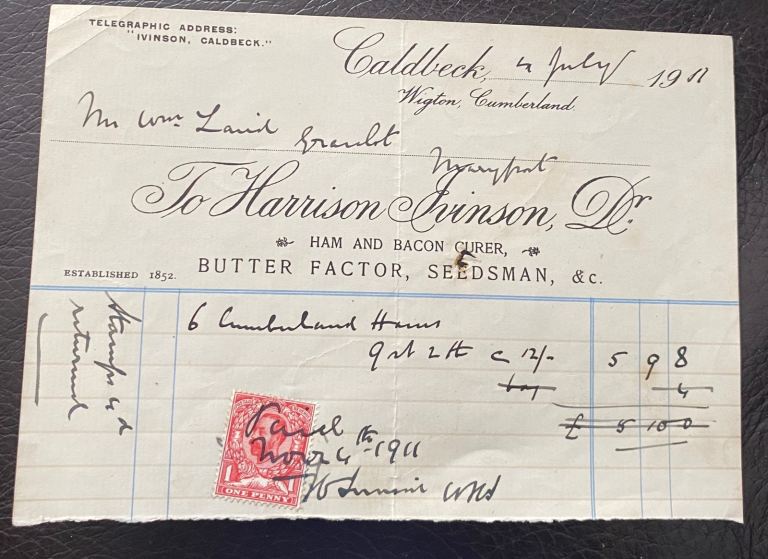 TELEGRAPHIC ADDRESS:
"IVINSON, CALDBECK."
Caldbeck, 4 July 1911
Wigton, Cumberland
Mr Wm Laird
Maryport
To Harrison Ivinson, Dr.
HAM AND BACON CURER,
ESTABLISHED 1852.
BUTTER FACTOR, SEEDSMAN, &c.
Stamps 4d
returned
6 Cumberland Hams
9 st 2 lb @ 12/- 5 9 8
4
£ 5 10 0
Novr 4th 1911
1 ONE PENNY 1